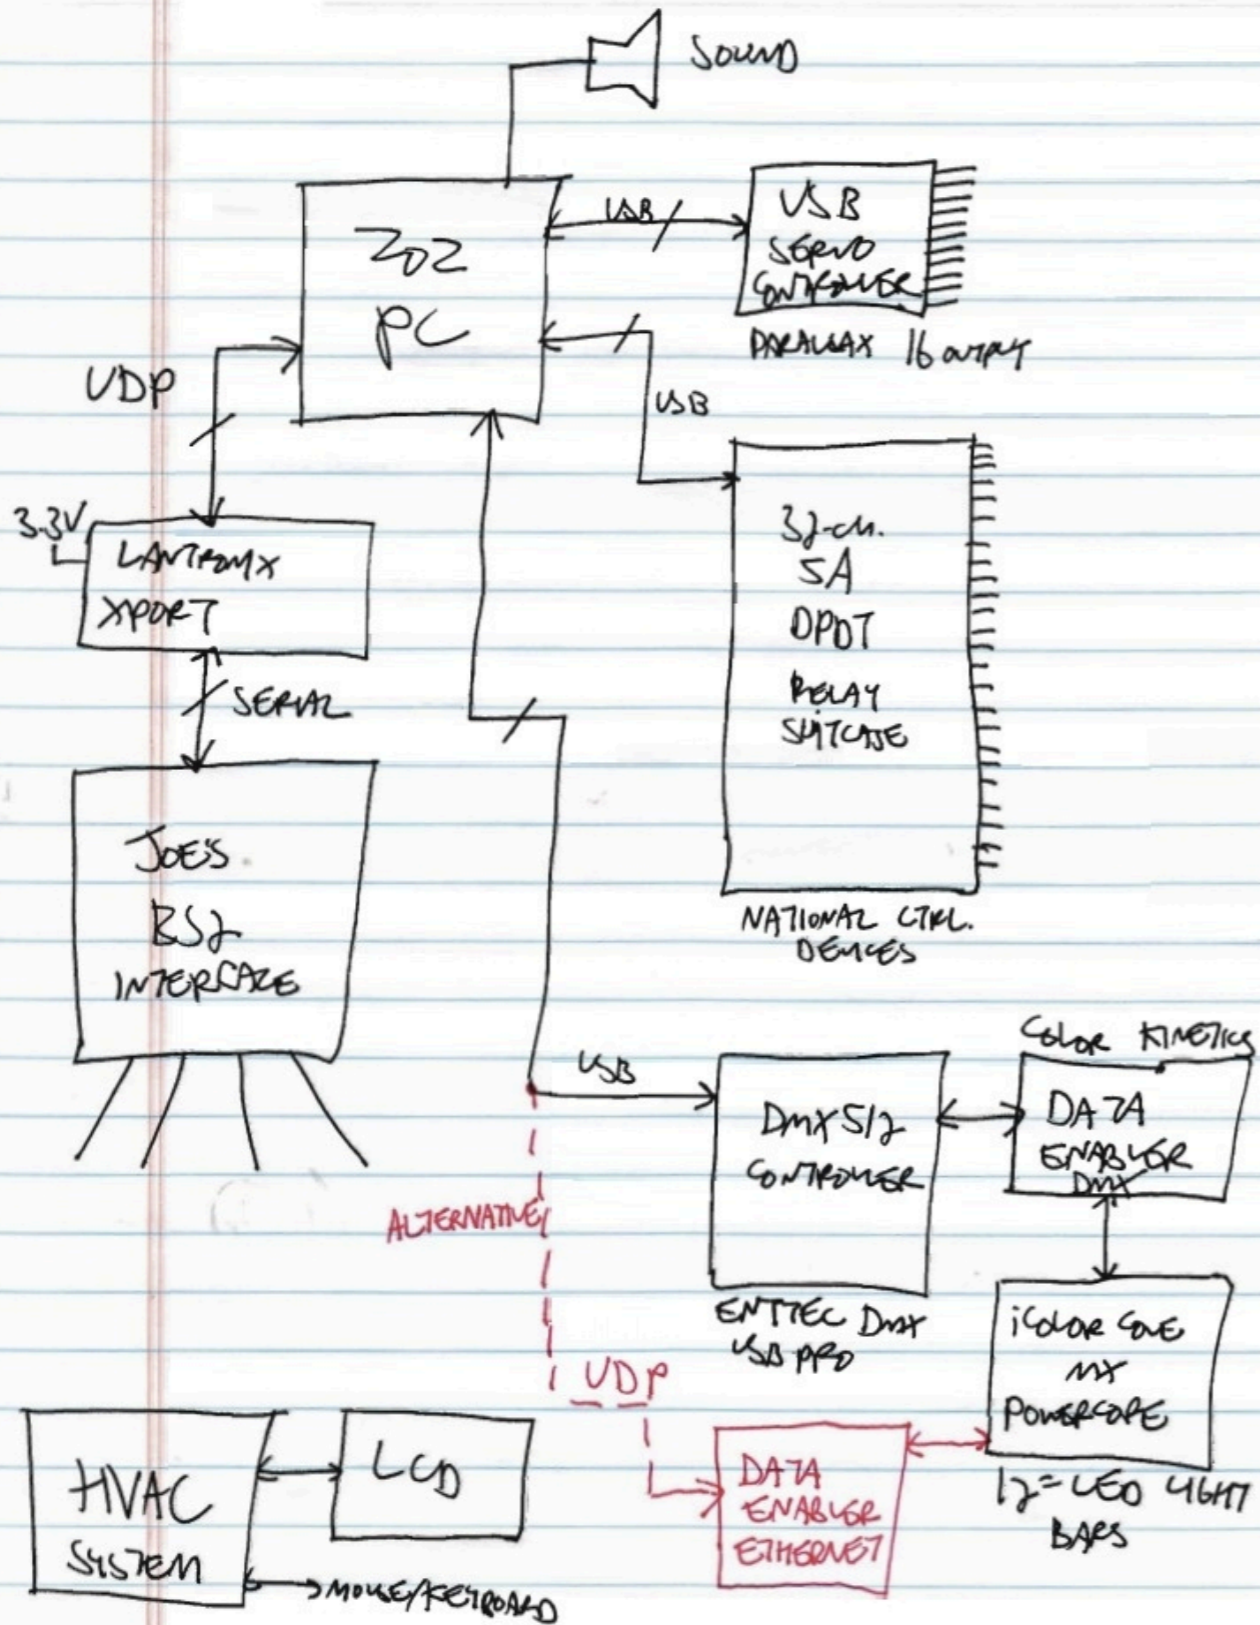 SOUND
ZOZ
PC
USB
USB
SERVO
CONTROLLER
PARALLAX 16 OUTPUT
UDP
USB
3.3V
LANTRONIX
XPORT
32-CH.
5A
DPDT
RELAY
SUITCASE
NATIONAL CTRL.
DEVICES
SERIAL
JOE'S
BS2
INTERFACE
USB
DMX512
CONTROLLER
ENTTEC DMX
USB PRO
COLOR KINETICS
DATA
ENABLER
DMX
iCOLOR COVE
MX
POWERCORE
12" LED LIGHT
BARS
ALTERNATIVE
UDP
DATA
ENABLER
ETHERNET
HVAC
SYSTEM
LCD
MOUSE/KEYBOARD